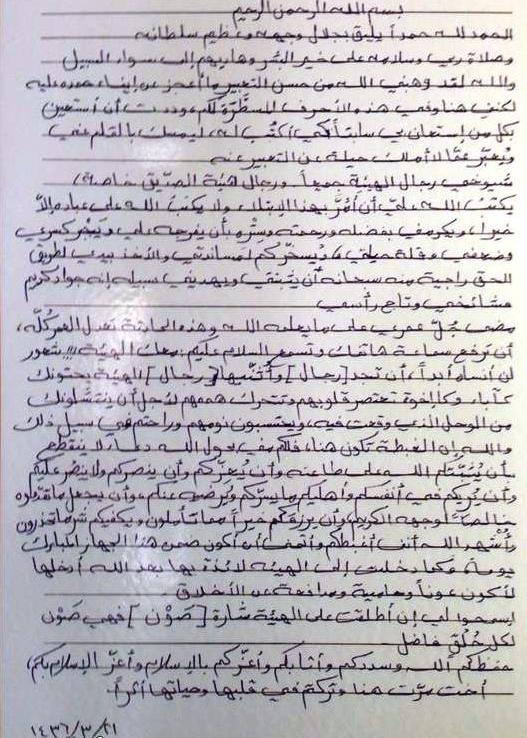 بسم الله الرحمن الرحيم
الحمد لله حمداً يليق بجلال وجهه وعظيم سلطانه
وصلاة ربي وسلامه على خير البشر وهاديهم إلى سواء السبيل
والله لقد وهبني الله من حسن التعبير ما أعجز عن إيفاء حمده عليه
لكني هنا وفي هذه الأحرف المسطّرة لكم، وددت أن أستعين
بكل من إستعان بي سابقاً لكي أكتب له، ليمسك بالقلم عني
ويُعبّر عمّا لا أملك حيلة عن التعبير عنه
شيوخي رجال الهيئة جميعاً.. ورجال هيئة الصدّيق خاصة،
يكتب الله عليّ أن أمُرّ بهذا الإبتلاء ولا يكتب الله على عباده إلاّ
خيرا، ويكرمني بفضله ورحمته وسِتْره بأن يفرجه علي ويَجْبر كسري
وضعفي وقلة حيلتي، ويُسخّركم لمساندتي والأخذ بيدي لطريق
الحق راجية منه سبحانه أن يثبتني ويهديني سبيله إنه جواد كريم
مشائخي وتاج رأسي
مضى جُلّ عمري على ما يعلمه الله وهذه الحادثة تعدل العمر كُلّه،
أن ترفع سماعة هاتفك وتسمع السلام عليكم: معك الهيئة!!! شعور
لن أنساه أبداً، أن تجد [رجال] وأُثنّيها [رجال] الهيئة يحتوونك
كآباء وكإخوة تعتصر قلوبهم وتتحرك هممهم لأجل أن ينتشلونك
من الوحل الذي وقعت فيه، ويحتسبون نومهم وراحتهم في سبيل ذلك
والله إن الغبطة تكون هنا، فلكم مني بحول الله دعاءً لا ينقطع
بأن يُثبّتكم الله على طاعته وأن يُعزّكم وأن ينصركم ولا ينصر عليكم
وأن يُريكم في أنفسكم وأهليكم ما يسرّكم ويُرضيه عنكم، وأن يجعل ما قدمتموه
خالصاً لوجهه الكريم وأن يرزقكم خيراً مما تأملون ويكفيكم شر ما تحذرون
وأُشهد الله أنني أغبطكم وأتمنى أن أكون ضمن هذا الجهاز المبارك
يوماً، فكما دخلت إلى الهيئة لائذة بها بعد الله أدخلها
لأكون عوناً وحامية ومدافعة عن الأخلاق.
إسمحوا لي إن أطلقت على الهيئة شارة [صَوْن] فهي صَوْن
لكل خُلُق فاضل
حفظكم الله وسددكم وأثابكم وأعزّكم بالإسلام وأعزّ الإسلام بكم،
أخت مرّت هنا وتركتم في قلبها وحياتها أثراً.
١٤٣٦/٣/٢١